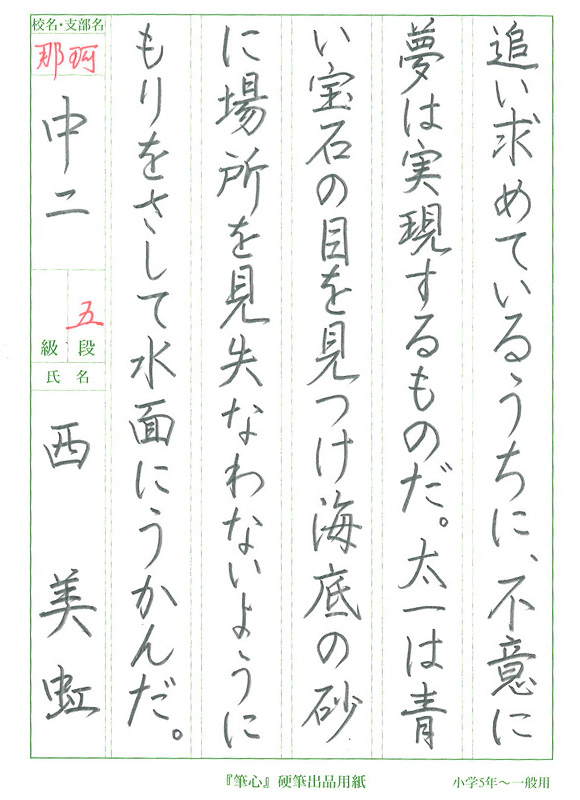 追い求めているうちに、不意に
夢は実現するものだ。太一は青
い宝石の目を見つけ海底の砂
に場所を見失なわないように
もりをさして水面にうかんだ。
校名・支部名
那珂
中二
五
級・段
氏名
西 美虹
『筆心』硬筆出品用紙
小学5年〜一般用